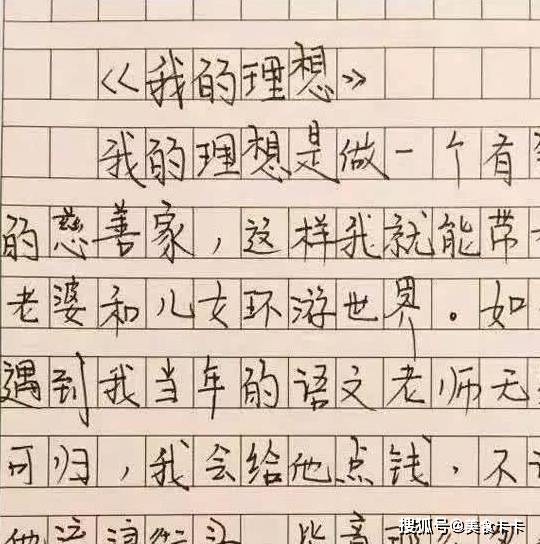 《我的理想》
我的理想是做一个有
的慈善家，这样我就能带
老婆和儿女环游世界。如
遇到我当年的语文老师无
可归，我会给他点钱，不
他流浪街头，毕竟那
搜狐号@美食卡卡